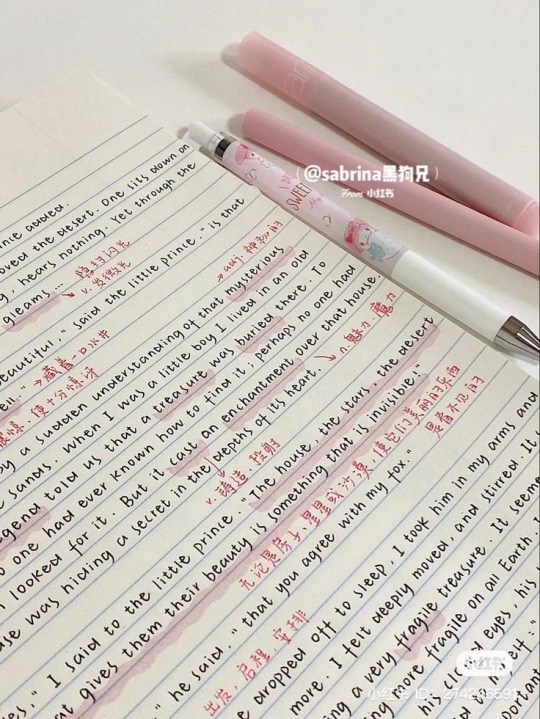 ince added.
oved the desert. One sits down on
, hears nothing. Yet through the
gleams...
隐约闪光
v. 发微光
eautiful," said the little prince. "is that
→藏着一口水井
adj. 神秘的
y a sudden understanding of that mysterious
sands. When I was a little boy I lived in an old
egend told us that a treasure was buried there. To
one had ever known how to find it; perhaps no one had
n looked for it. But it cast an enchantment over that house
n. 魅力 魔力
use was hiding a secret in the depths of its heart.
v. 铸造 投射
"I said to the little prince. "The house, the stars, the desert
at gives them their beauty is something that is invisible."
无论是房子、星星或沙漠, 使它们美丽的东西
是看不见的
" he said, "that you agree with my fox."
出发 启程 安排
e dropped off to sleep, I took him in my arms and
more. I felt deeply moved, and stirred. It
g a very fragile treasure. It seeme
more fragile on all Earth. I
eyes, his
"
portant
@sabrina黑狗兄
From 小红书
I'
SWEET
小红书
小红书 ID: